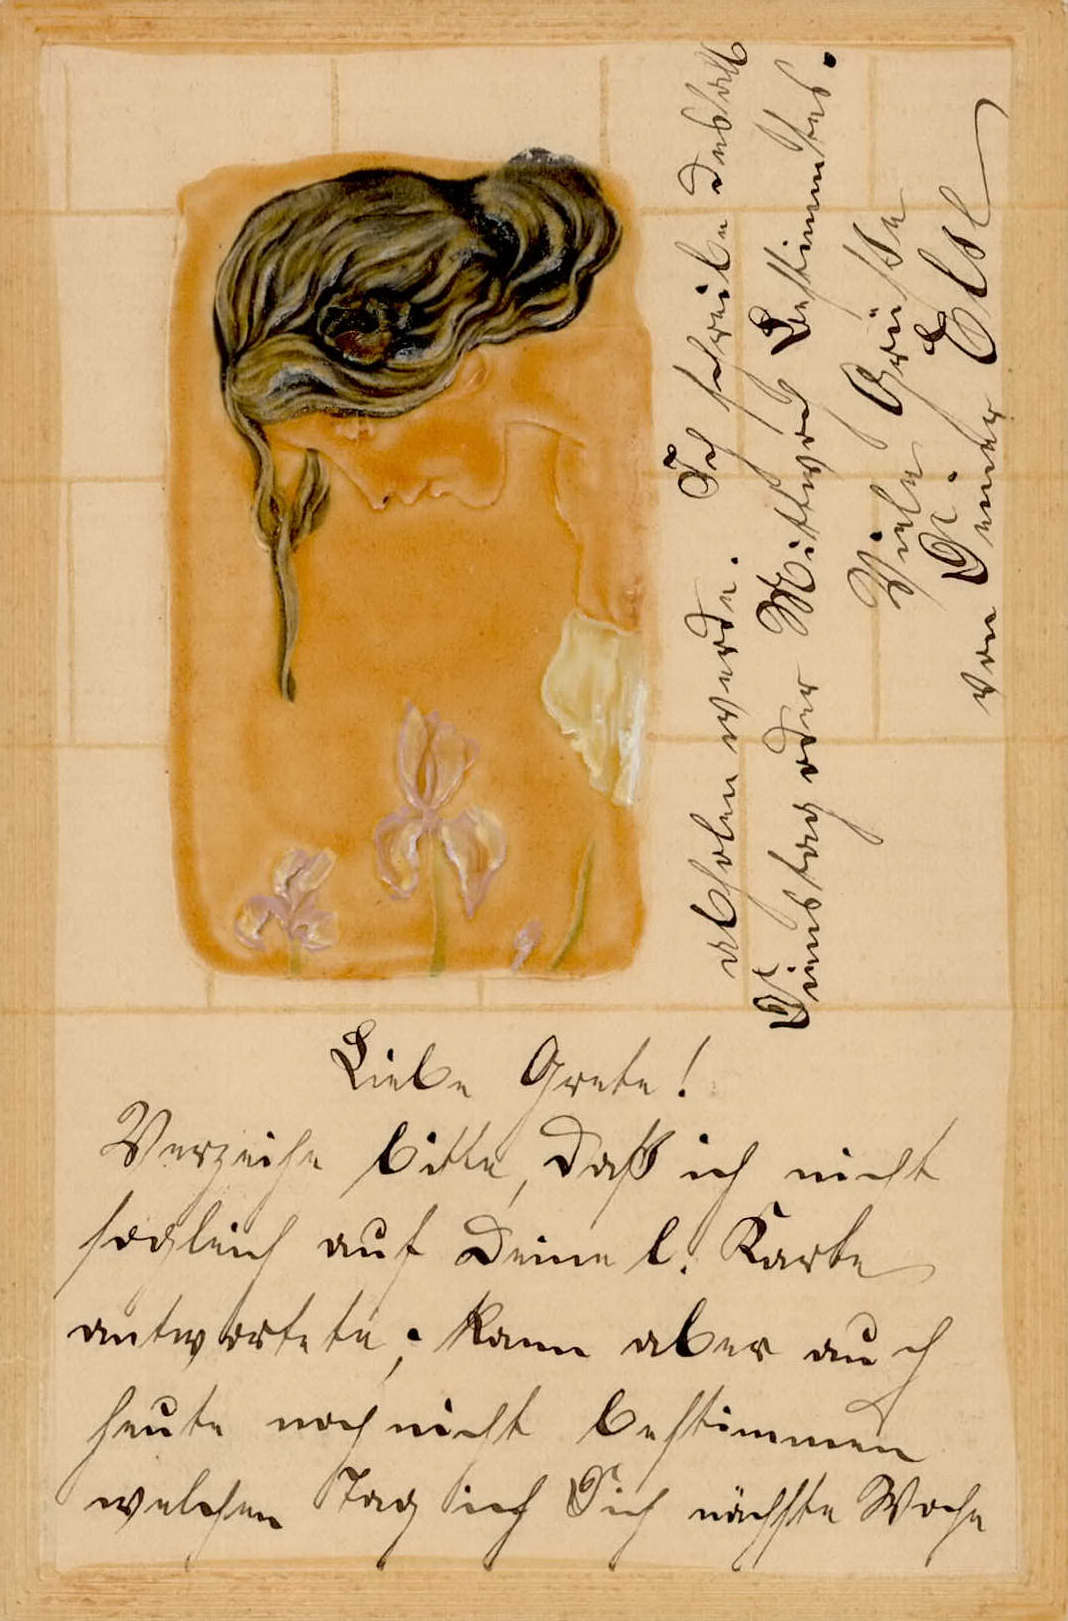 Liebe Grete!
Verzeihe bitte, daß ich nicht
sogleich auf Deine l. Karte
antwortete; kann aber auch
heute noch nicht bestimmen
welchen Tag ich Dich nächste Woche
abholen werde. Ich schreibe deshalb
Dienstag oder Mittwoch Bestimmtes.
Viele Grüße
von Deiner Else